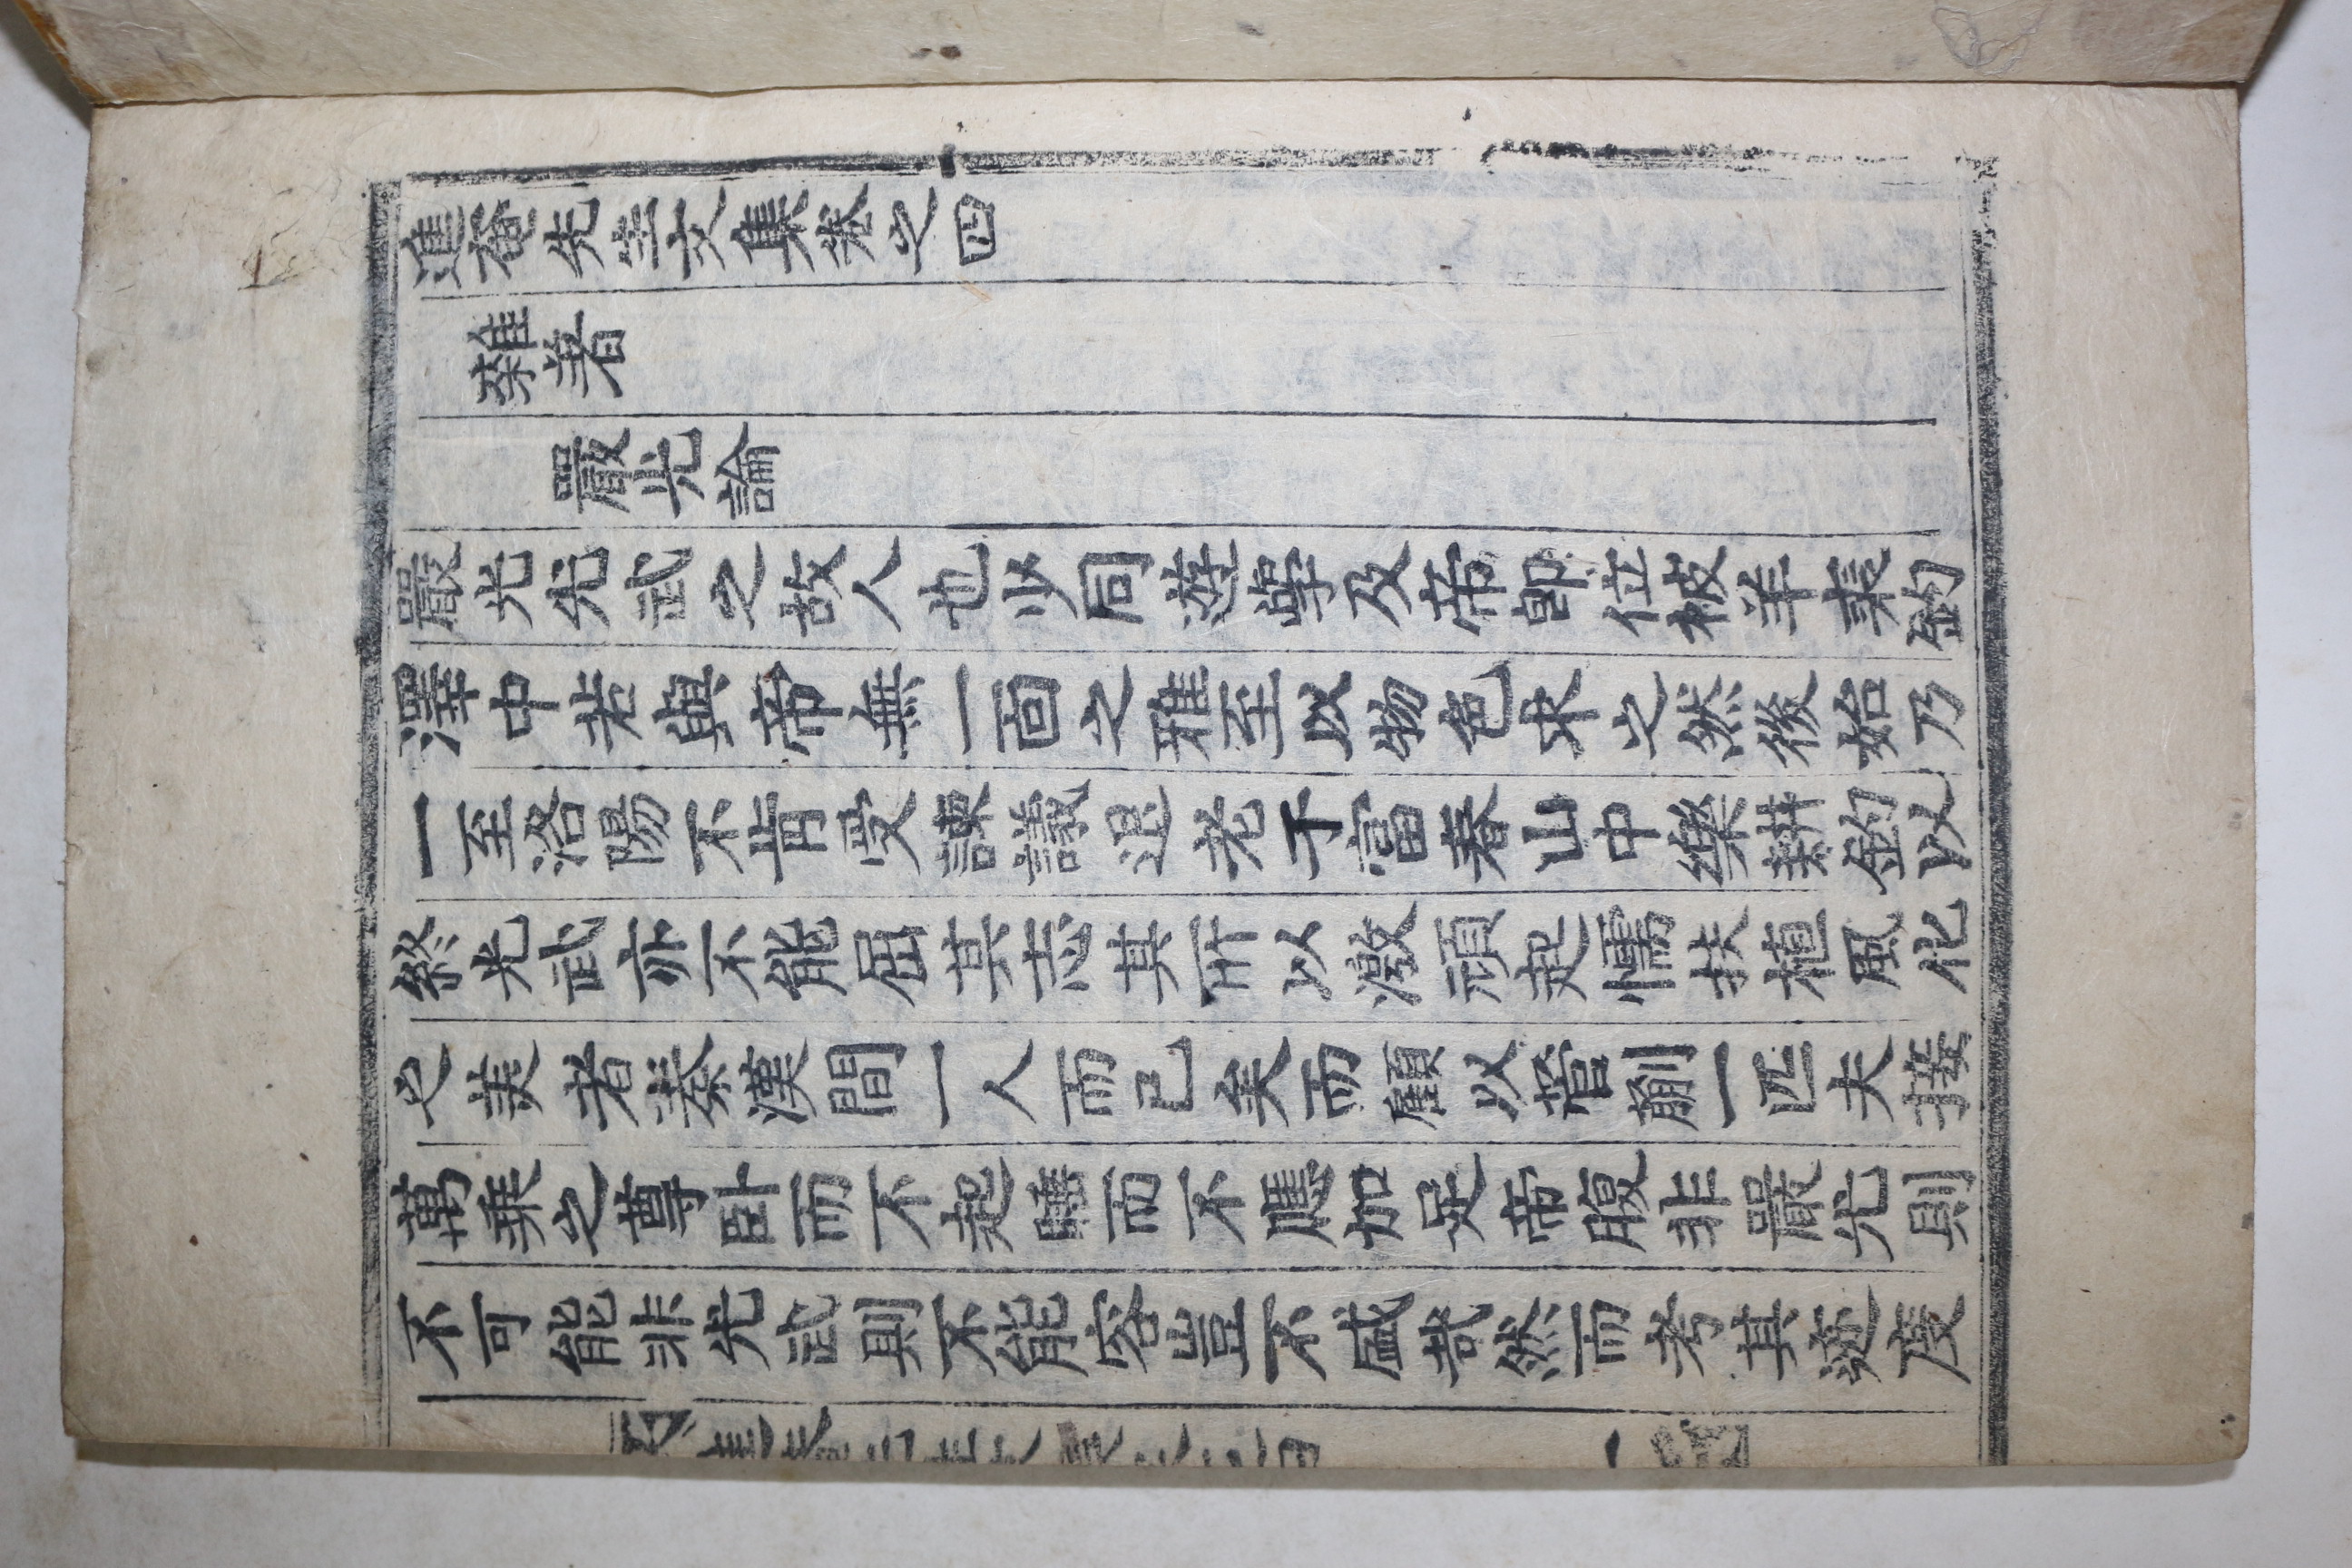 進菴先生文集卷之四
雜著
嚴光論
嚴光光武之故人也少同遊學及帝即位被羊裘釣
澤中若與帝無一面之雅至以物色求之然後始乃
一至洛陽不肯受諫議退老于富春山中樂耕釣以
終光武亦不能屈其志其所以激頑起懦扶植風化
之美者秦漢間一人而已矣而顧以菅蒯一匹夫接
萬乘之尊卧而不起睡而不應加足帝腹非嚴光則
不可能非光武則不能容豈不盛哉然而考其迹度